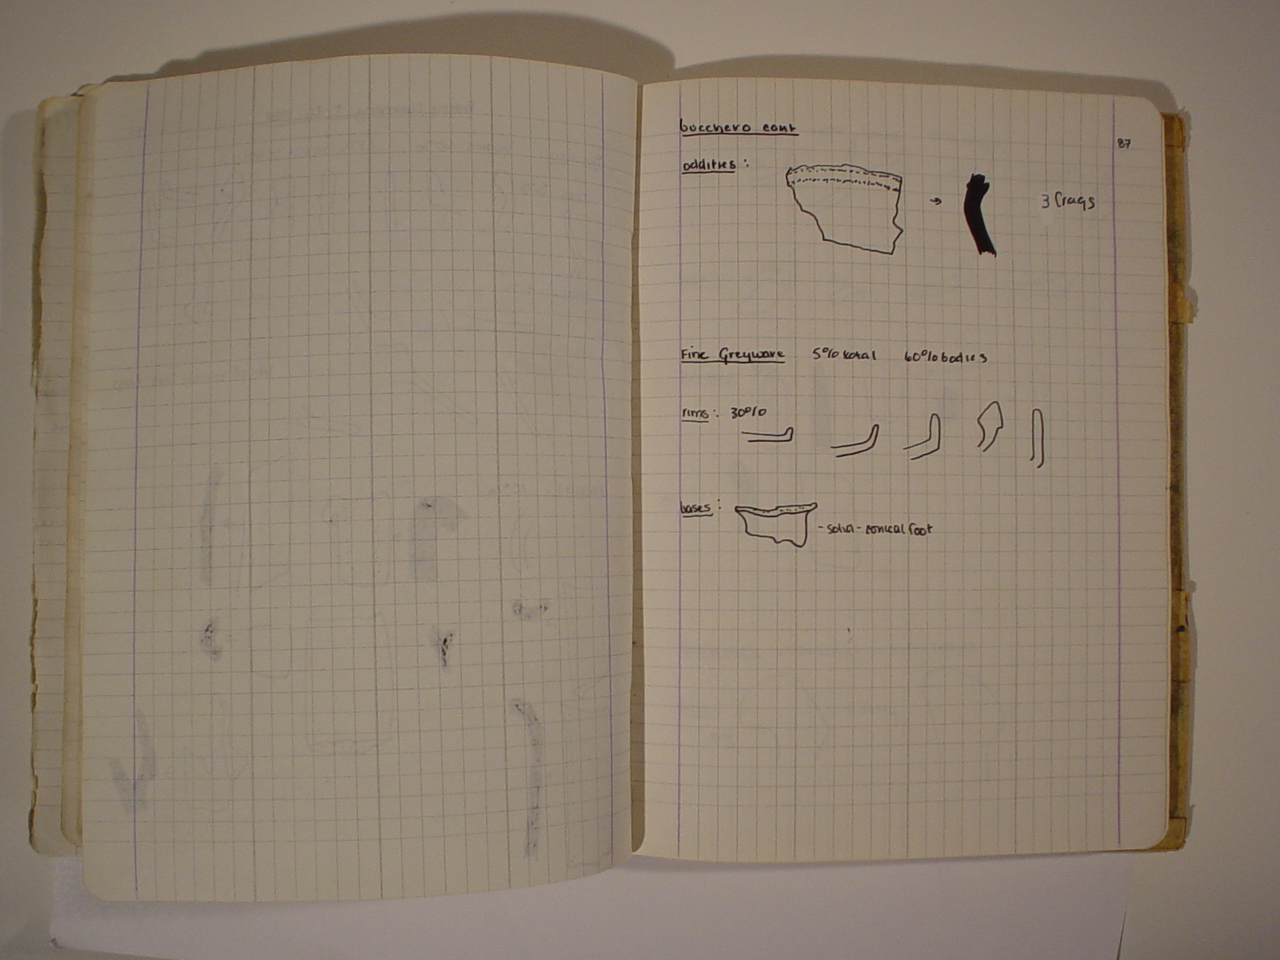 bucchero cont
87
oddities:
3 frags
Fine Greyware 5% total 60% bodies
rims: 30%
bases:
- solid - conical foot